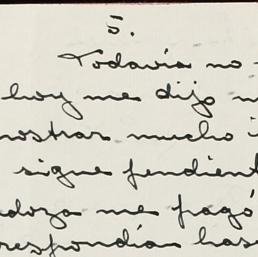 5.
Todavía no
hoy me dijo
mostrar mucho i
sigue pendient
doza me pagó
respondía has